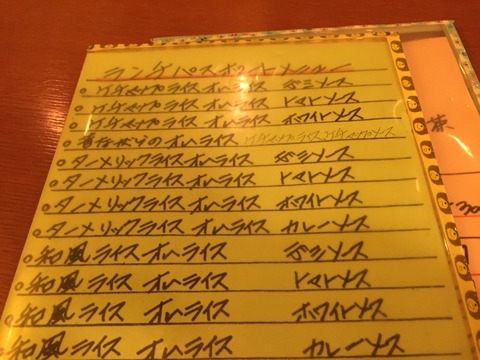 ランチパスポートメニュー
ケチャップライスオムライス デミソース
ケチャップライスオムライス トマトソース
ケチャップライスオムライス ホワイトソース
昔ながらのオムライス ケチャップライス ケチャップソース
ターメリックライスオムライス デミソース
ターメリックライスオムライス トマトソース
ターメリックライスオムライス ホワイトソース
ターメリックライスオムライス カレーソース
和風ライス オムライス デミソース
和風ライス オムライス トマトソース
和風ライス オムライス ホワイトソース
和風ライス オムライス カレーソース